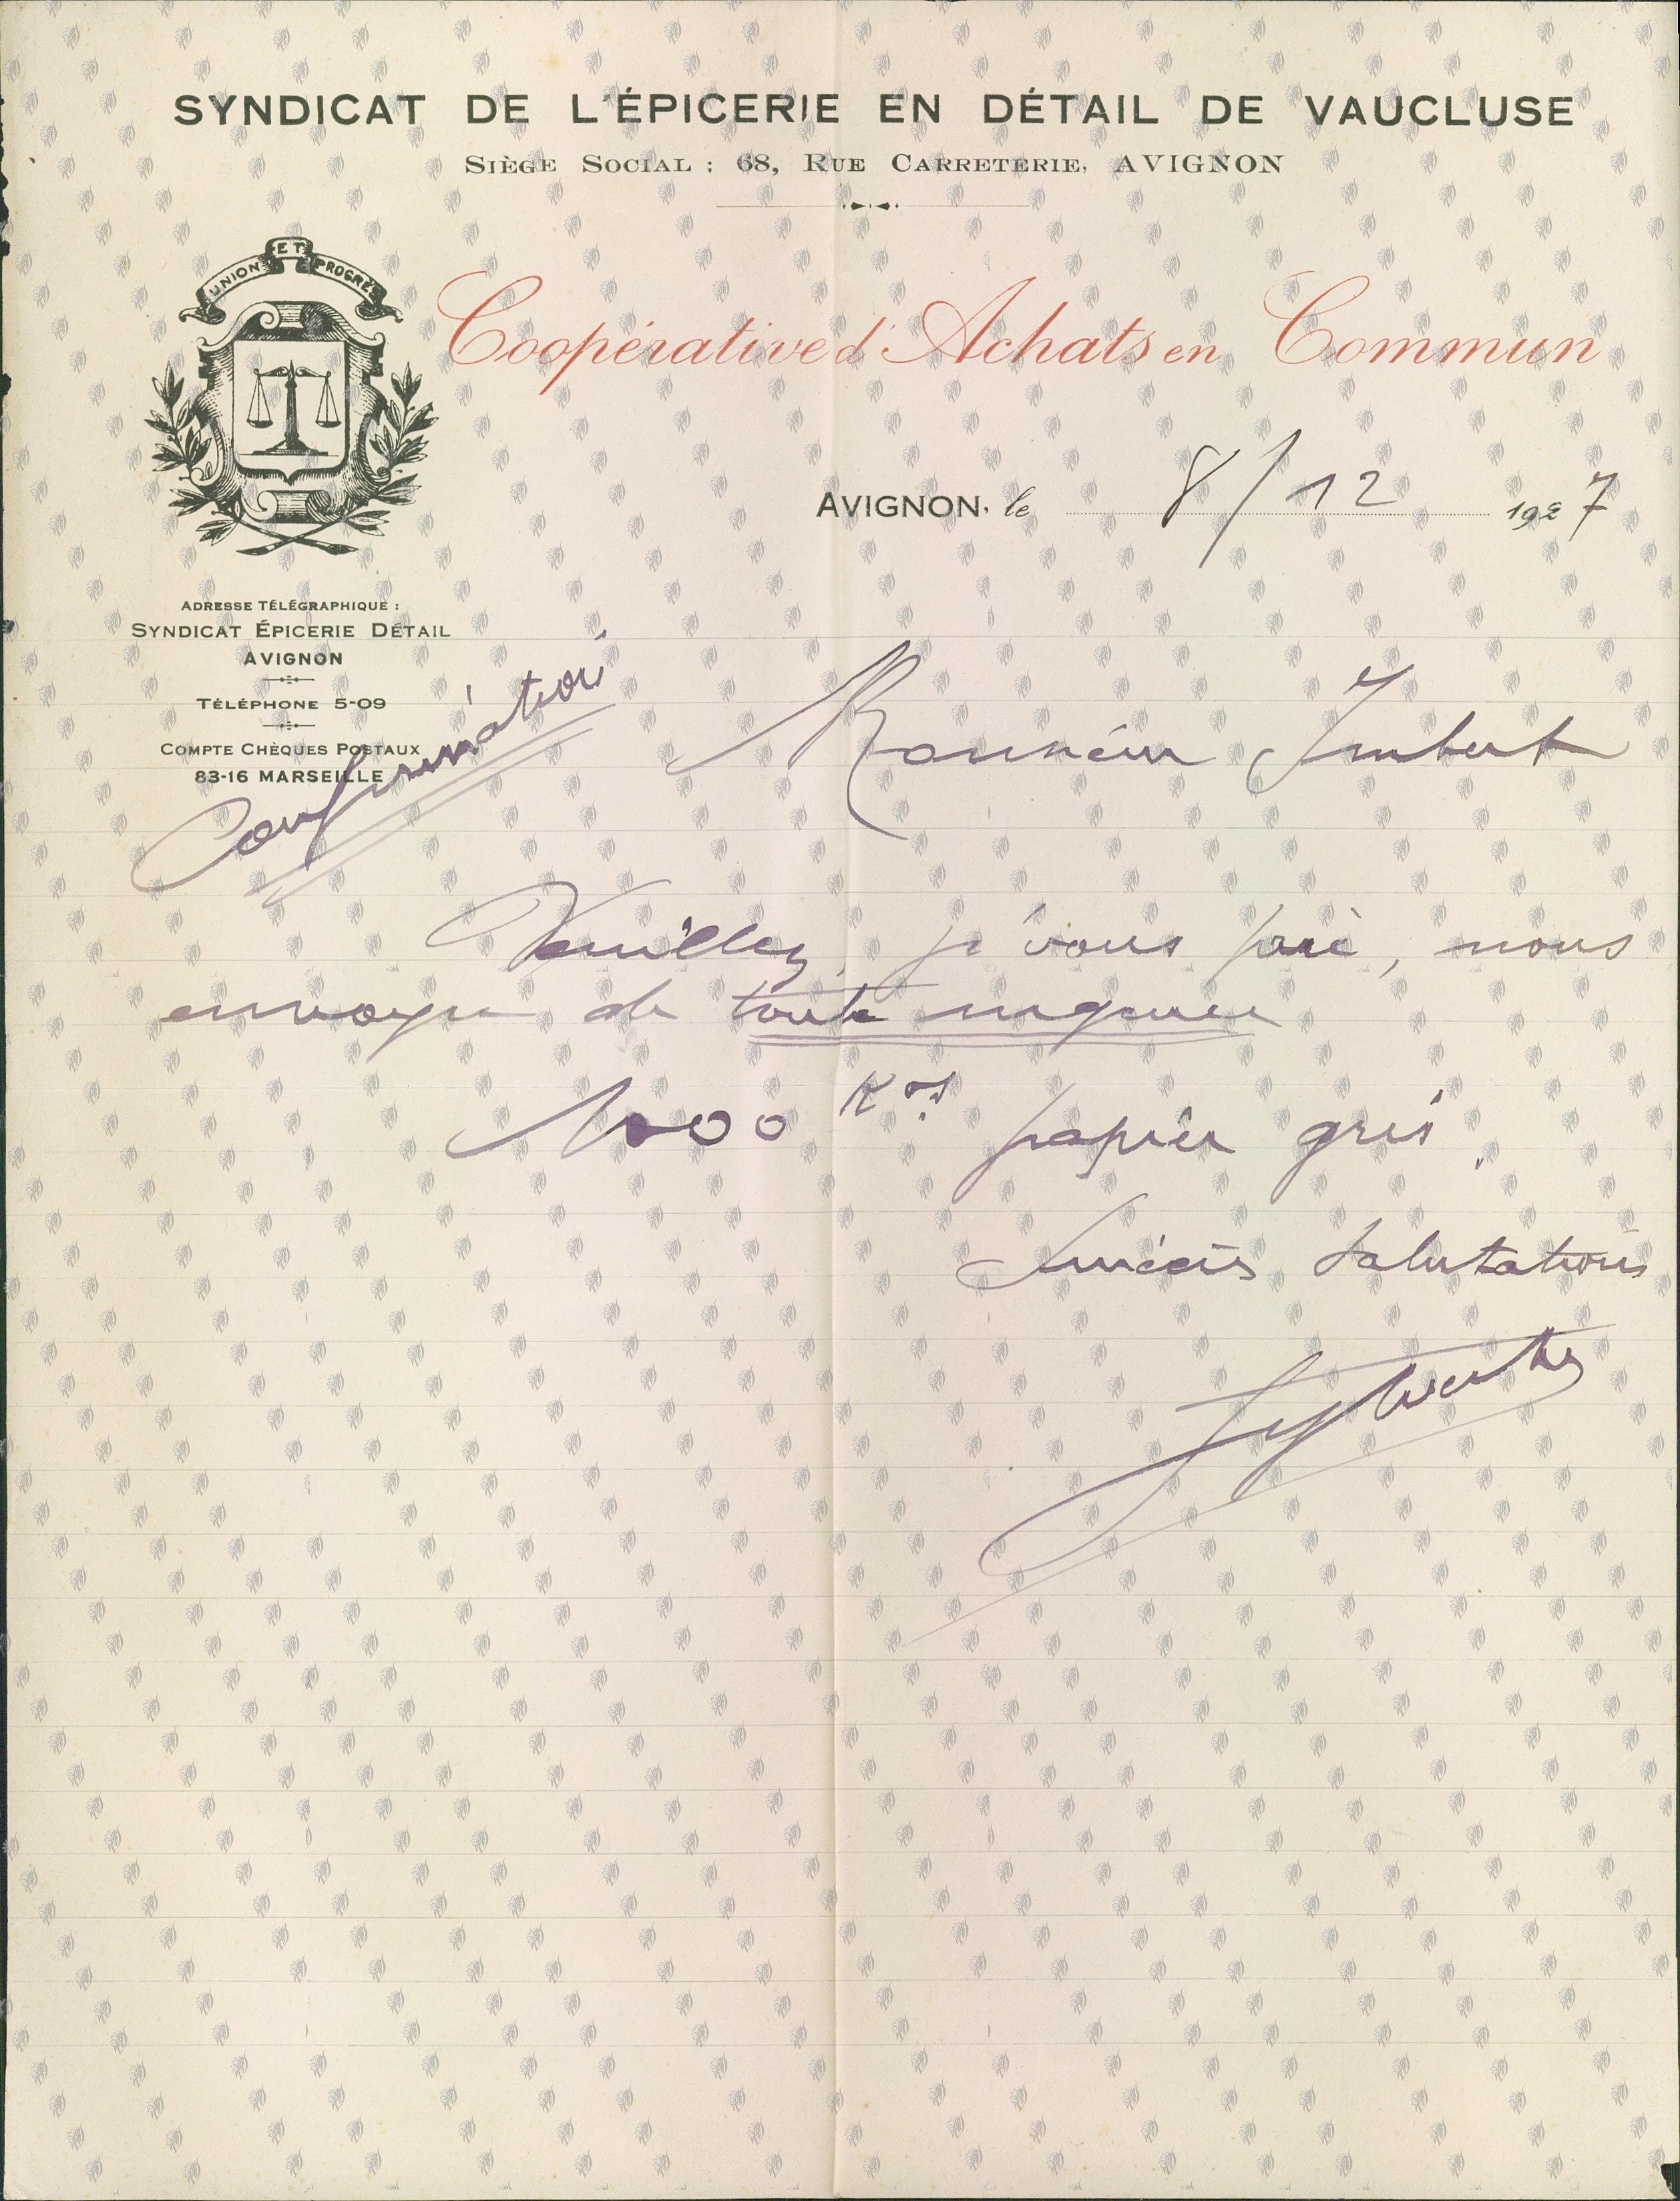 SYNDICAT DE L'ÉPICERIE EN DÉTAIL DE VAUCLUSE
SIÈGE SOCIAL : 68, RUE CARRETERIE, AVIGNON
UNION ET PROGRÈS
Coopérative d'Achats en Commun
AVIGNON, le 8/12 1927
ADRESSE TÉLÉGRAPHIQUE :
SYNDICAT ÉPICERIE DÉTAIL
AVIGNON
TÉLÉPHONE 5-09
COMPTE CHÈQUES POSTAUX
83-16 MARSEILLE
Confirmation
Monsieur Imbert
Veuillez, je vous prie, nous
envoyer de toute urgence
1000 Kos papier gris.
Sincères salutations